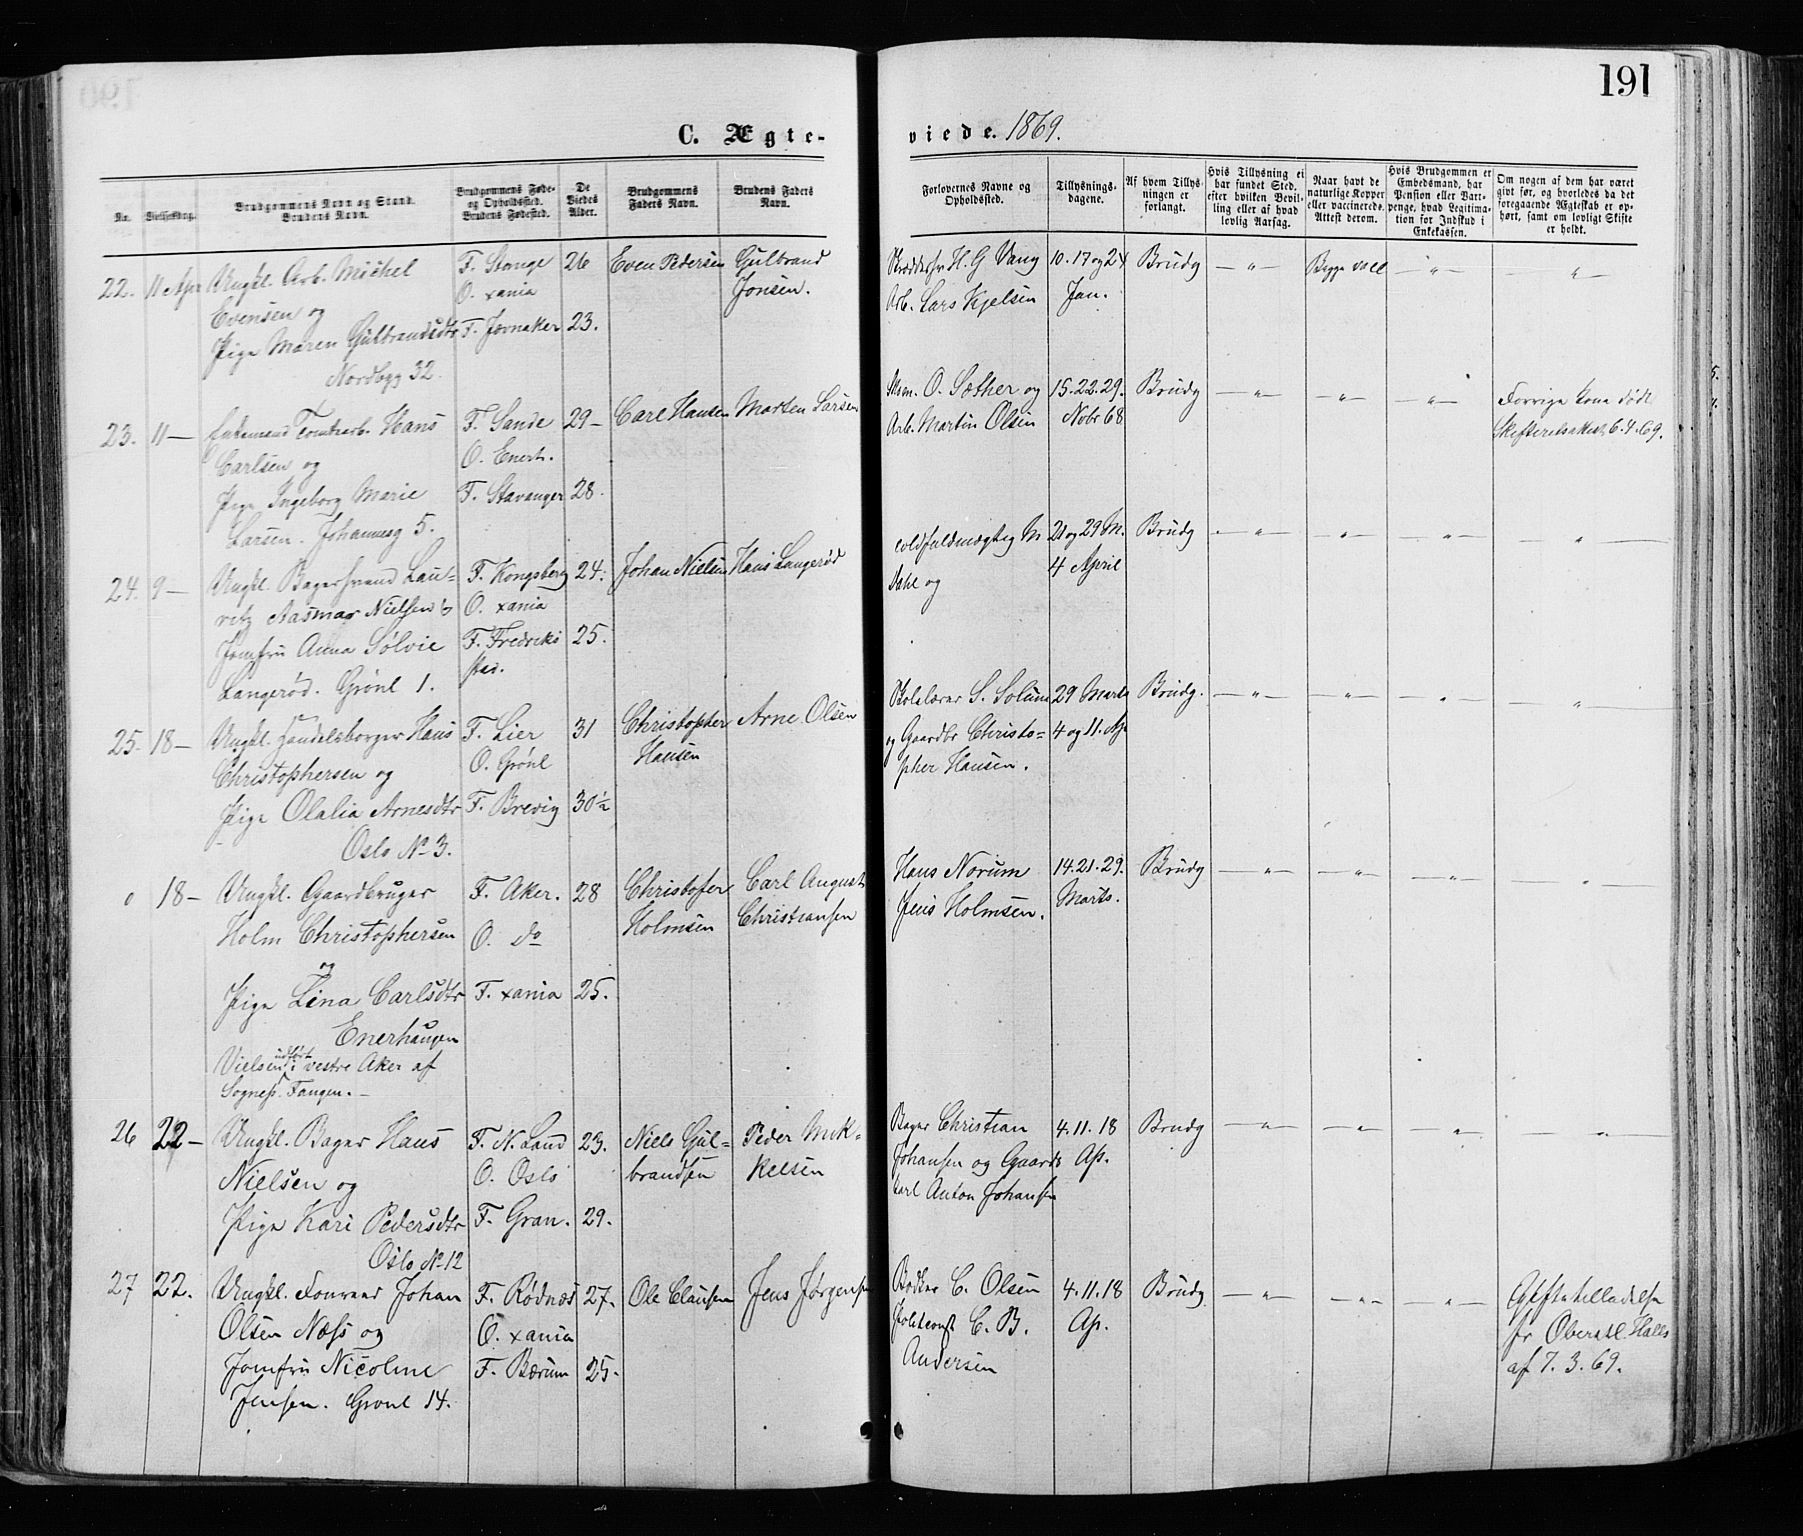 191
C. Ægte-
viede. 1869.
No.
Vielsesdag.
Brudgommens Navn og Stand.
Brudens Navn.
Brudgommens Føde-
og Opholdssted.
Brudens Fødested.
De
Viedes
Alder.
Brudgommens
Faders Navn.
Brudens Faders
Navn.
Forlovernes Navne og
Opholdssted.
Tillysnings-
dagene.
Af hvem Tillys-
ningen er
forlangt.
Hvis Tillysning ei
har fundet Sted,
efter hvilken Bevil-
ling eller af hvad
lovlig Aarsag.
Naar havt de
naturlige Kopper
eller vaccinerede.
Attest derom.
Hvis Brudgommen er
Embedsmand, har
Pension eller Vart-
penge, hvad Legitima-
tion for Indskud i
Enkekassen.
Om nogen af dem har været
givt før, og hvorledes da det
foregaaende Ægteskab er op-
hørt, samt om lovligt Skifte
er holdt.
22. 11 Apr Ungkl. Arb. Michel F. Stange 26 Even Pedersen Gulbrand
Evensen og O. xania Jonsen.
Pige Maren Gulbrandsdtr F. Jevnaker 23.
Nordbyg 32.
H. G. Vang 10. 17 og 24 Brudg — " — Begge vacc — " — "
Arb. Lars Kjelsen Jan.
23. 11 — Enkemand Tomtearb. Hans F. Sande 29 — Carl Hansen Morten Larsen
Carlsen og O. Enerh.
Pige Ingeborg Marie F. Stavanger 28.
Larsen. Johannesg 5.
Skom. O. Sæther og 15. 22. 29. Brudg — " — — " — — " — Forrige Kone død
Arb. Martin Olsen Nobr 68 Skifteretsattest 6. 4. 69.
24. 9 — Ungkl. Bagersvend Lau- F. Kongsberg 24. Johan Nielsen Hans Langerød
ritz Aasmar Nielsen & O. xania
Jomfru Anna Sølvie F. Fredriks 25.
Langerød. Grønl 1. stad.
Toldfuldmægtig M 21 og 29 M. Brudg — " — " " "
Dahl og 4 April
25. 18 — Ungkl. Handelsborger Hans F. Lier 31 Christopher Arne Olsen
Christophersen og O. Grønl Hansen
Pige Olalia Arnesdtr F. Brevig 30 ½
Oslo No 3.
Skolelærer S. Solum 29 Marts Brudg. — " — — " — " "
og Gaardbr Christo= 4 og 11. Ap.
pher Hansen.
o 18 — Ungkl. Gaardbruger F. Aker. 28 Christofer Carl August
Holm Christophersen O. do Holmsen Christiansen
og
Pige Lina Carlsdtr F. xania 25.
Enerhaugen
Vielsen udført i vestre Aker af
Sognep. Fangen. —
Hans Norum 14. 21. 29. Brudg — " — — " — — " — "
Jens Holmsen. Marts.
26 22 — Ungkl. Bager Hans F. N. Land 23. Niels Gul= Peder Mik=
Nielsen og O. Oslo brandsen kelsen
Pige Kari Pedersdtr F. Gran. 29.
Oslo No 12
Bager Christian 4. 11. 18 Brudg — " — — " — — " — — " —
Johansen og Gaards Ap.
karl Anton Johansen
27 22. Ungkl. Johan F. Rødnæs 27. Ole Clausen Jens Jørgensen
Olsen Næss og O. xania
Jomfru Nicoline F. Bærum 25.
Jensen. Grønl 14.
Bødker C. Olsen 4. 11. 18 Brudg. — " — — " — — " — Giftetilladelse
Politconst C. B. Ap. fr Oberstl. Halls
Andersen af 7. 3. 69.